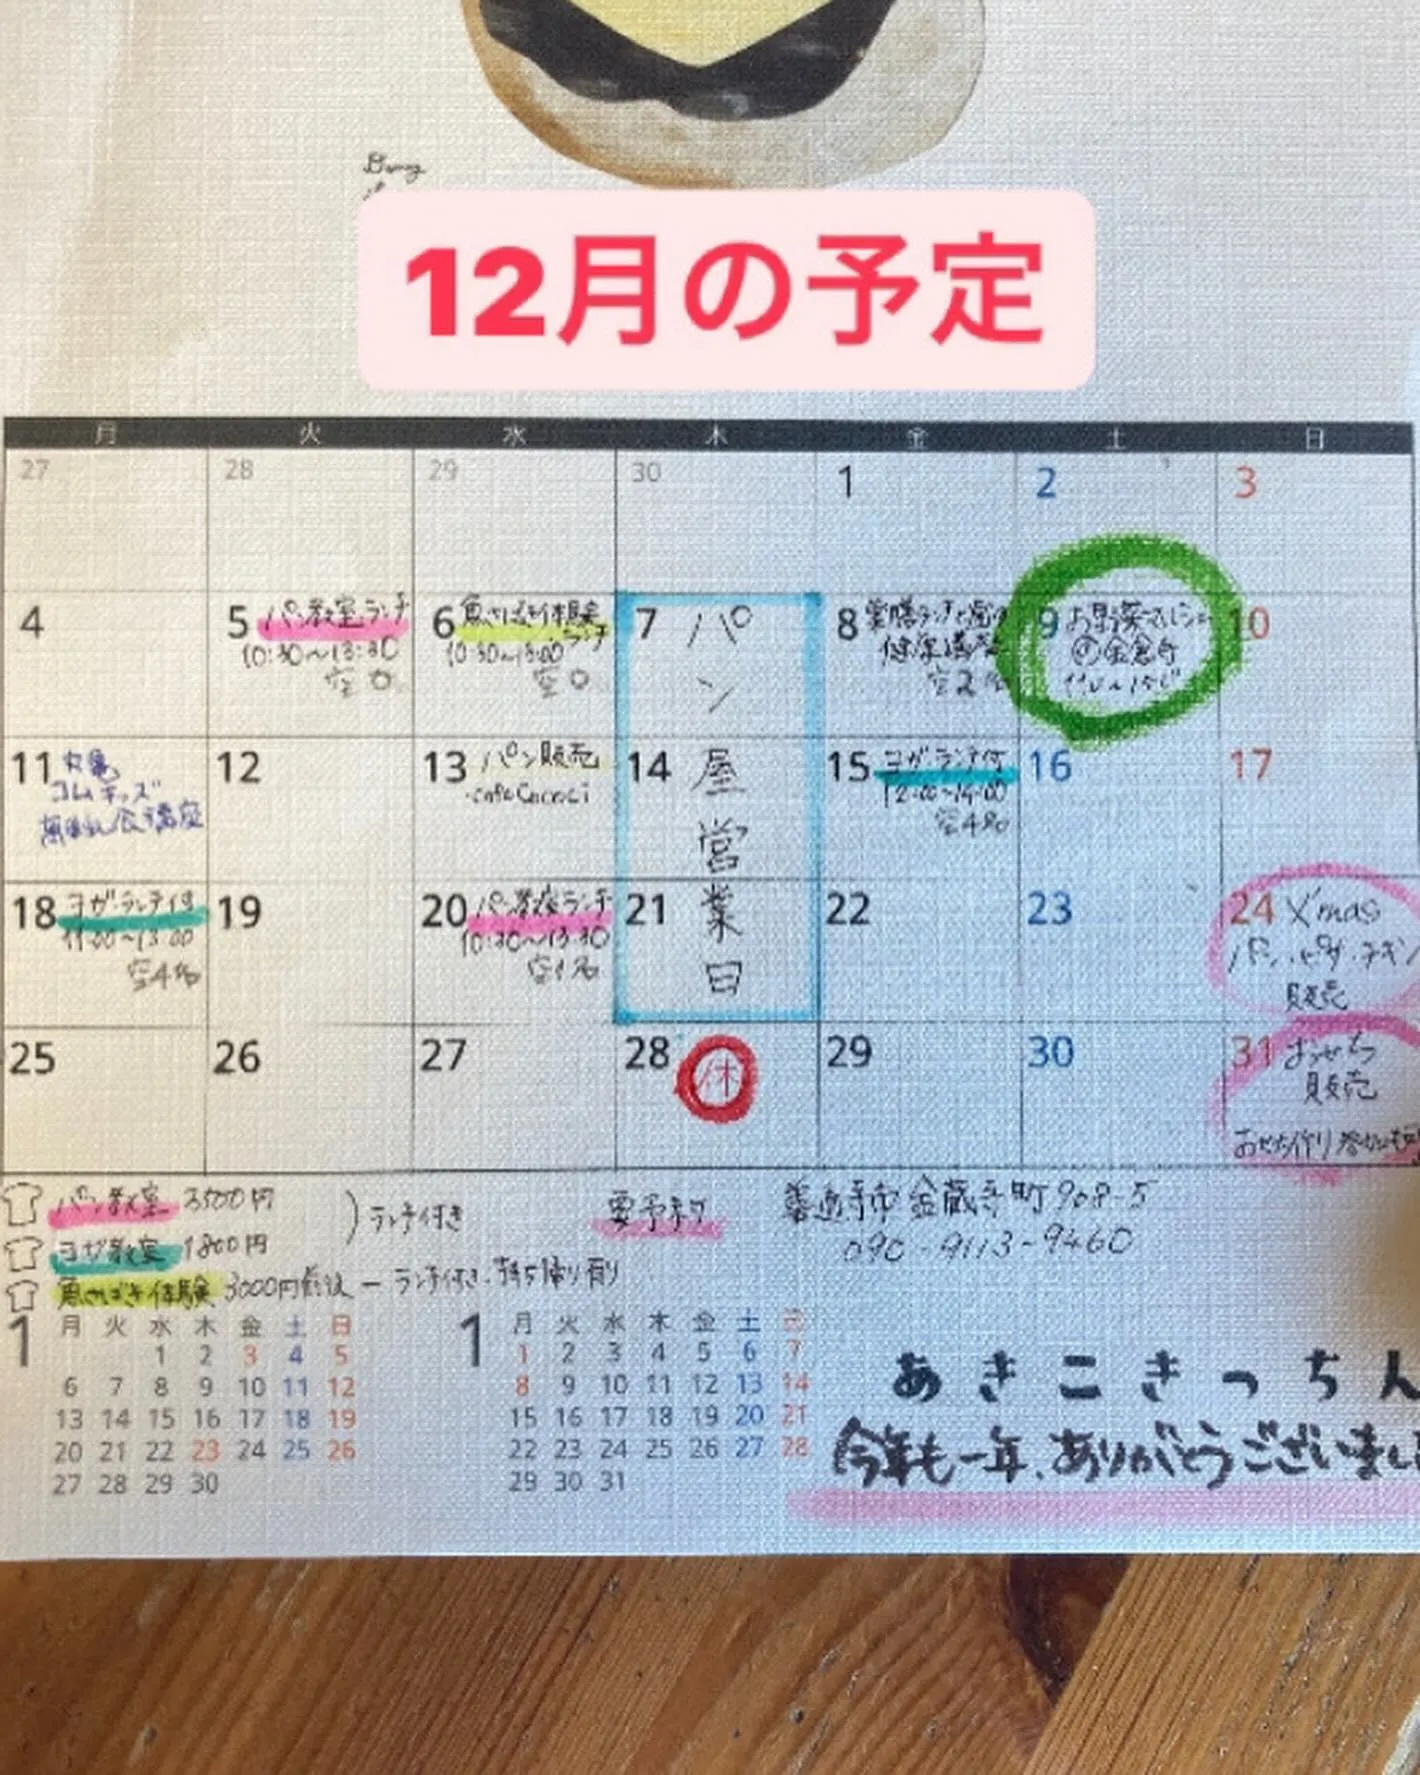 12月の予定
月 火 水 木 金 土 日
27 28 29 30 1 2 3
4
5 パン教室ランチ
10:30〜13:30
空 0
6 魚さばき体験
ランチ
10:30〜13:00
空 0
7 パン屋営業日
8 薬膳ランチと
健康講座
空2名
9
@金倉寺
10
11 丸亀
ゴムキッズ
12
13 パン販売
cafe Cococi
14
15 ヨガ ランチ付
12:00〜14:00
空4名
16
17
18 ヨガランチ付
11:00〜13:00
空4名
19
20 パン教室ランチ
10:30〜13:30
空1名
21
22
23
24 X'mas
パン・ピザ・チキン
販売
25
26
27
28 休
29
30
31 おせち
販売
パン教室 3500円
ヨガ教室 1800円
ランチ付き
魚さばき体験 3000円前後 ー ランチ付き・持ち帰り有り
要予約
善通寺市金蔵寺町908-5
090-9113-9460
1 月 火 水 木 金 土 日
1 2 3 4 5
6 7 8 9 10 11 12
13 14 15 16 17 18 19
20 21 22 23 24 25 26
27 28 29 30
1 月 火 水 木 金 土 日
1 2 3 4 5 6 7
8 9 10 11 12 13 14
15 16 17 18 19 20 21
22 23 24 25 26 27 28
29 30 31
あきこきっちん
今年も一年、ありがとうございまし